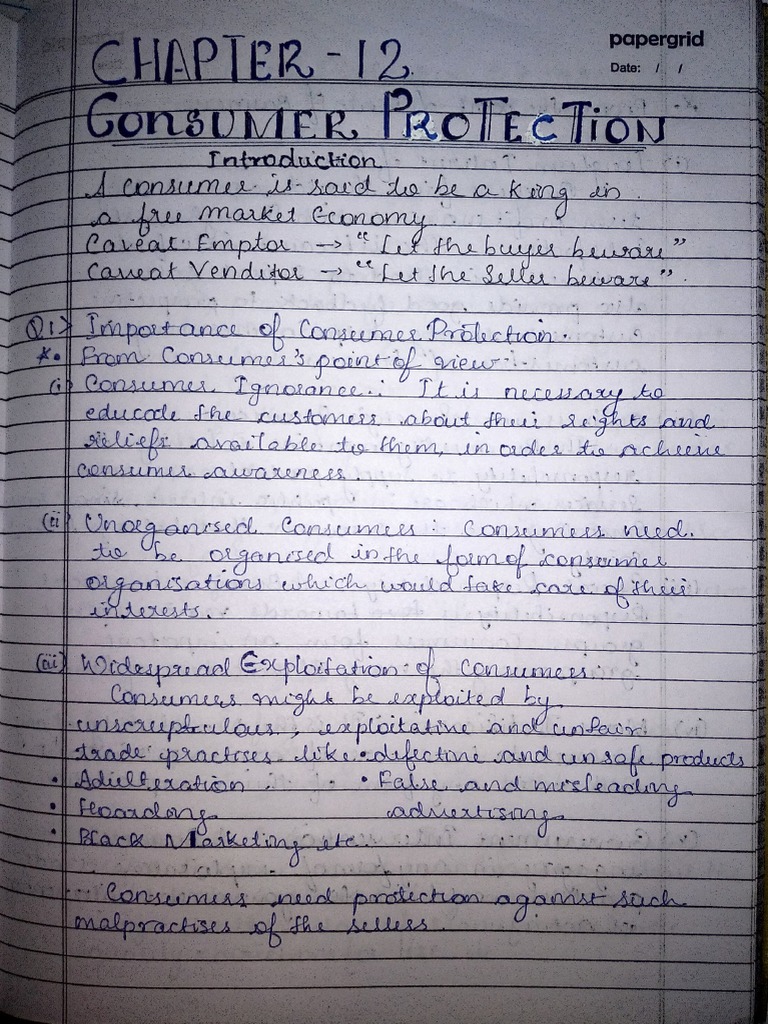 papergrid
Date: / /
CHAPTER - 12
CONSUMER PROTECTION
Introduction
A consumer is said to be a king in
a free market Economy
Caveat Emptor → "Let the buyer beware"
Caveat Venditor → "Let the Seller beware".
Q1> Importance of Consumer Protection.
*. From Consumer's point of view:
(i) Consumer Ignorance: It is necessary to
educate the customers about their rights and
reliefs available to them, in order to achieve
consumer awareness.
(ii) Unorganised Consumers: Consumers need
to be organised in the form of consumer
organisations which would take care of their
interests.
(iii) Widespread Exploitation of Consumers:
Consumers might be exploited by
unscruptulous, exploitative and unfair
trade practises like • defective and unsafe products
• Adulteration • False and misleading
• Hoarding advertising
• Black Marketing etc.
Consumers need protection against such
malpractises of the sellers.